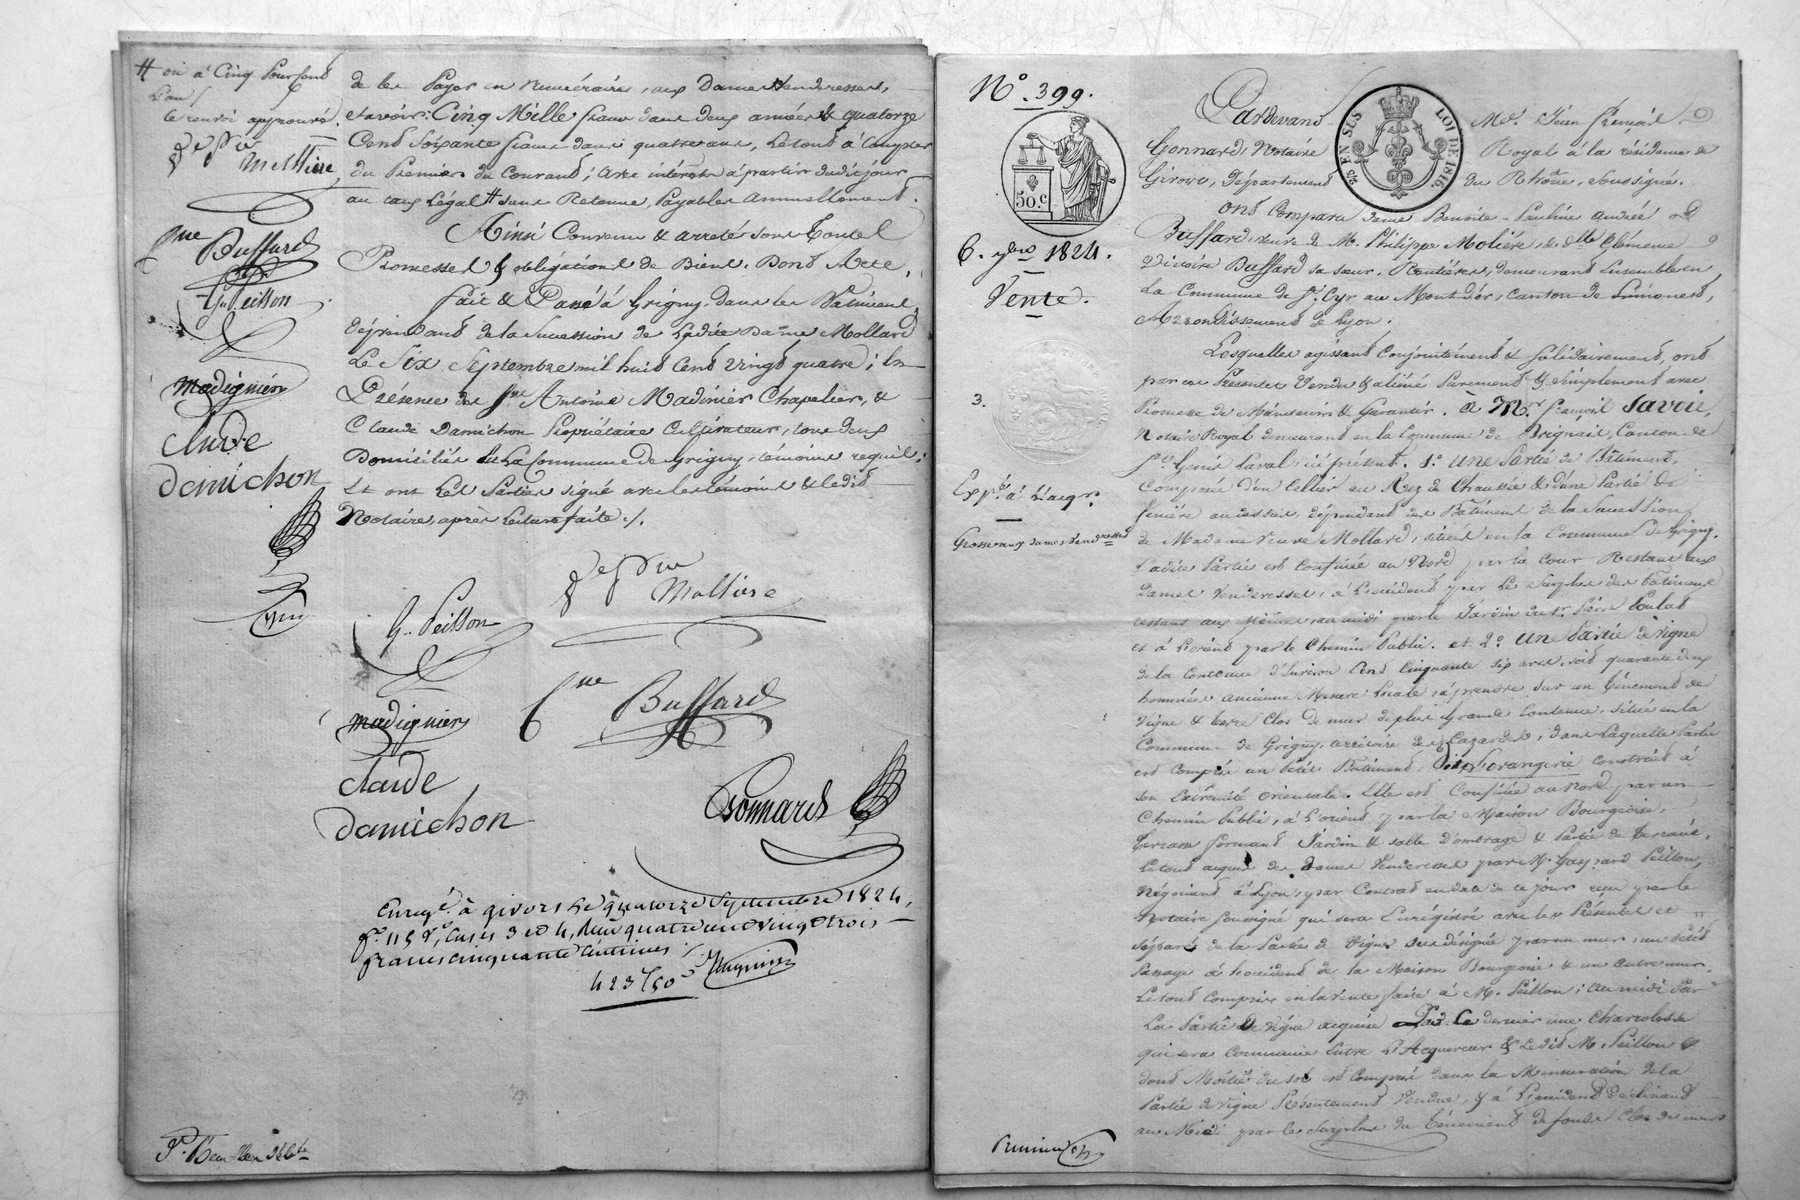 # ou à Cinq Pour Cent
L'an /
le renvoi approuvé.
Vve Molliere
Buffard
G. Peillon
Madignier
Claude
Damichon
de les Payer en Numéraire, aux Dames Venderesses,
Savoir: Cinq Mille francs dans deux années & quatorze
Cent Soixante francs dans quatre ans, Le tout à Compter
du Premier du Courant; avec intérêts à partir dudit jour
au taux Légal # sans Retenue, Payables Annuellement.
Ainsi Convenu & arrêté sous Toutes
Promesses & obligations de Biens. Dont Acte,
fait & Passé à Grigny, dans les Batiments
dépendants de la Succession de Ladite Dame Mollard
Le Six Septembre mil huit Cent vingt quatre; En
Présence des Srs Antoine Madinier Chapelier, &
Claude Damichon Propriétaire Cultivateur, tous deux
Domiciliés en La Commune de Grigny, témoins requis;
Et ont Les Parties signé avec les témoins & ledit
Notaire, après Lecture faite ./.
Vve Molliere
G. Peillon
Buffard
Madignier
Claude
Damichon
Gonnard
Enregé à Givors le quatorze Septembre 1824,
fo 115 Vo, Cases 3 et 4, Reçu quatre cent vingt trois
francs cinquante Centimes
423 f 50 c
No. 399.
50.c
6. 7bre 1824.
Vente.
3.
Expé à L'acqr.
Grosse aux dames Vendresses
25 EN SUS
LOI DE 1816.
Pardevant Me. Jean françois
Gonnard, Notaire Royal à la résidence de
Givors, Département du Rhône, Soussigné.
ont Comparu dame Benoite-Pauline Andrée
Buffard, veuve de M. Philippe Molière, & dlle Clémence
Victoire Buffard sa sœur, Rentières, demeurant Ensemble en
La Commune de St. Cyr au Mont d'or, Canton de Limonest,
Arrondissement de Lyon;
Lesquelles agissant Conjointement & Solidairement, ont
par ces Présentes Vendu & aliéné Purement & Simplement avec
Promesse de Maintenir & Garantir. à Mr. françois Savoie,
Notaire Royal demeurant en la Commune de Brignais, Canton de
St. Genis Laval, ici présent. 1o. Une Partie de Bâtiment,
Composée d'un Cellier au Rez de Chaussée & d'une Partie de
fenière au dessus, dépendant des Bâtiments de la Succession
de Madame Veuve Mollard, situés en la Commune de Grigny.
Ladite Partie est Confinée au Nord par la Cour Restant aux
dames Venderesses, à L'occident par Le Surplus des bâtiments
restant aux mêmes, au midi par le Jardin du Sr. Pierre Poulat
et à L'orient par le Chemin Public. et 2o. Une Partie de Vigne
de la Contenue d'Environ Cent Cinquante six ares, soit quarante deux
hommées ancienne Mesure Locale, à prendre sur un Ténement de
Vigne & terre Clos de murs de plus Grande Contenue, situé en la
Commune de Grigny, territoire des Cazardes, dans Laquelle Partie
est Compris un Petit Bâtiment, dit L'orangerie construit à
son Extrémité orientale. Elle est Confinée au Nord par un
Chemin Public, à L'orient par la Maison Bourgeoise,
terrasse formant Jardin & salle d'ombrage & Partie de terrain,
Le tout acquis des Dames Venderesses par M. Gaspard Peillon,
Négociant à Lyon, par Contrat en date de ce Jour reçu par le
Notaire soussigné qui sera Enregistré avec les Présentes et
séparé de la Partie de Vigne sus désignée par un mur, un Petit
Passage à L'occident de la Maison Bourgeoise & un autre mur,
Le tout Compris en la Vente faite à M. Peillon; au midi Par
La Partie de Vigne acquise Par Ce dernier une Charrolasse
qui sera Commune Entre L'Acquereur & Ledit M. Peillon &
dont Moitié du sol est Compris dans la Mensuration de la
Partie de Vigne Présentement Vendue, & à L'occident déclinant
au Midi par le Surplus du Ténement de fonds Clos de murs